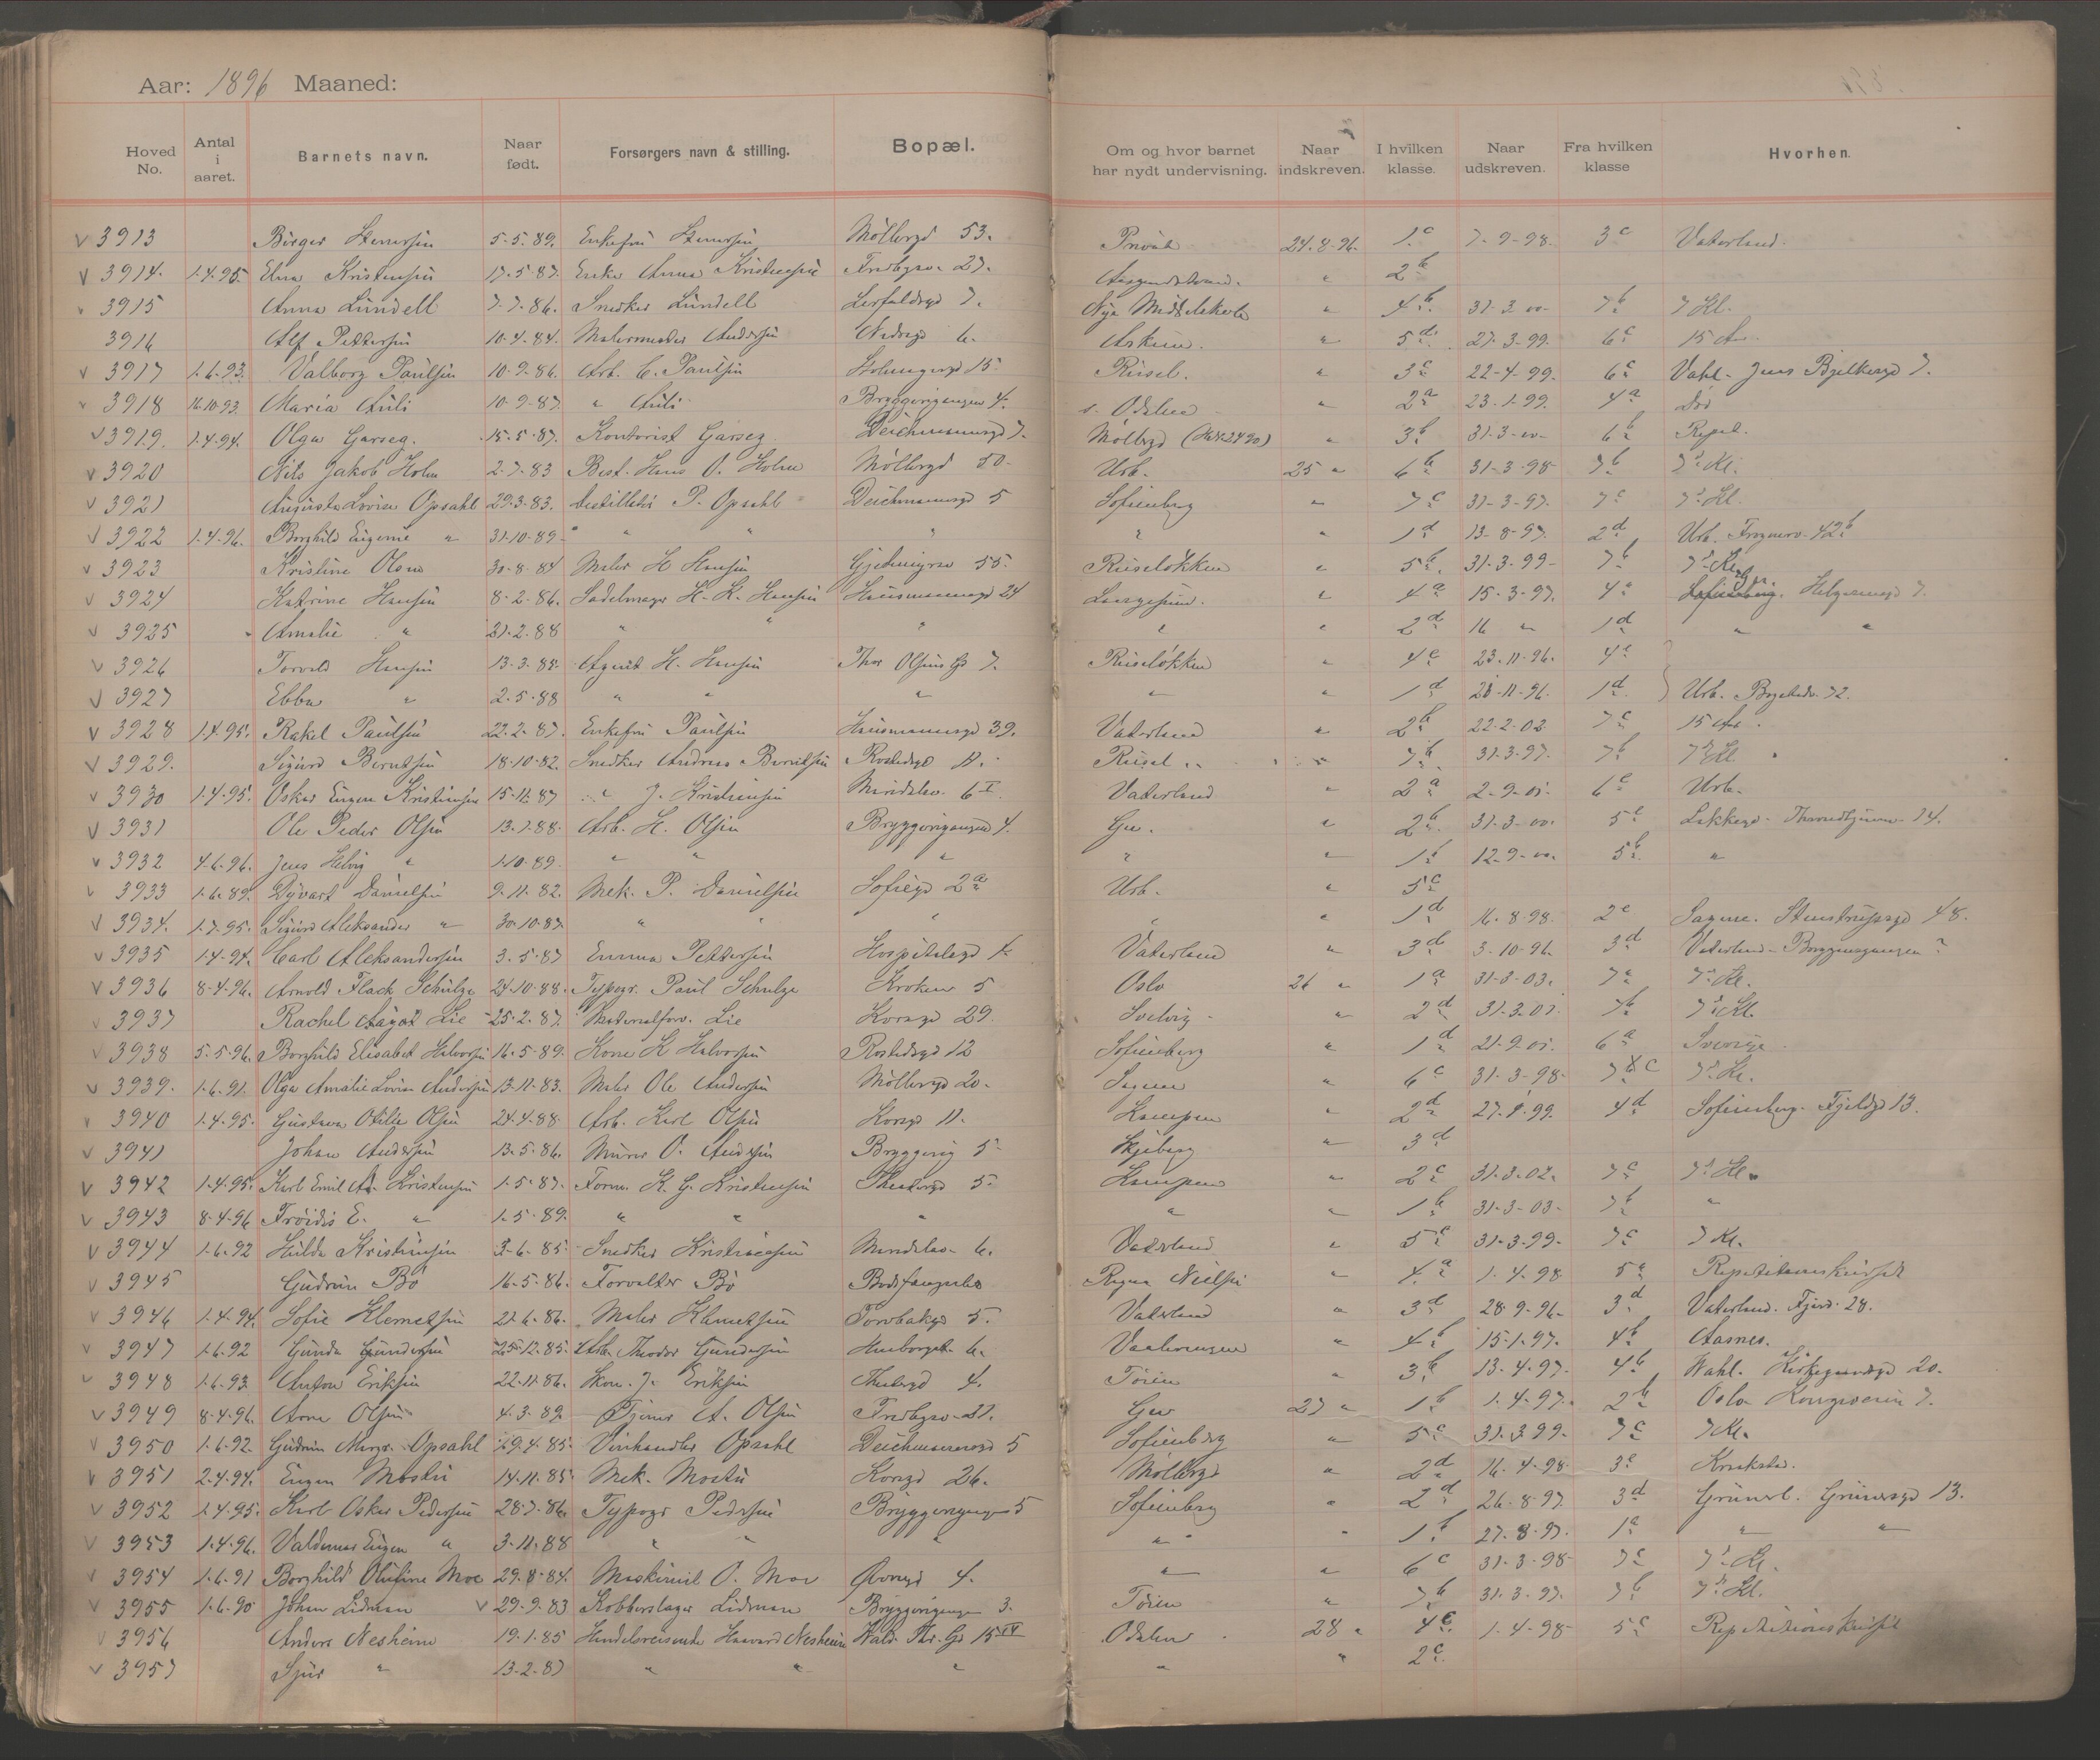 Aar: 1896 Maaned:
Hoved No. Antal i aaret. Barnets navn. Naar født. Forsørgers navn & stilling. Bopæl. Om og hvor barnet har nydt undervisning. Naar indskreven. I hvilken klasse. Naar udskreven. Fra hvilken klasse Hvorhen.
3913 Birger 5-5-89. Enkefru Møllergd 53. Privat 24-8-96. 1c 7-9-98. 3c Vaterland.
3914. 1-4-95. Elna Kristensen 17-5-87. Enke Anna Kristensen 27. " 2b
3915 Anna Lündell 7-7-86. Snedker Lündell 7. Nye Middelskole " 4b 31-3-00- 7b 7 Kl.
3916 Alf Pettersen 10-4-84. Malermester Andersen 6. Askim. " 5d 27-3-99. 6c 15 Aar.
3917 1-6-93. Valborg Paulsen 10-9-86. Arb. C. Paulsen 15. Rüsel. " 3c 22-4-99. 6c Vahl. Jens Bjelkesgd 7.
3918 16-10-93. Maria Auli 10-9-87. " Auli Bryggerigangen 4. s. Odalen " 2a 23-1-99. 4a Död
3919. 1-4-94. Olga Garseg. 15-5-87. Kontorist Garseg Deichmannsgd 7. Møllergd " 3b 31-3-00- 6b Repet.
3920 Nils Jakob Holm 2-7-83 Best. Hans O. Holm Møllergd 50- Urb. 25 " 6b 31-3-98- 7b 7' Kl.
3921 Augusta Lovise Opsahl 29-3-83. Destillatör P. Opsahl Deichmannsgd 5 Sofienberg " 7c 31-3-97. 7c 7' Kl.
3922 1-4-96. Borghild Eugenie " 31-10-89- " " " " " 1d 13-8-97. 2d Urb. Frognerv. 42b
3923 Kristine Olsen 30-8-84 Maler H Hansen 55. Rüseløkken " 5b 31-3-99- 7b 7' Kl.
3924 Katrine Hansen 8-2-86. Sadelmager H. K. Hansen Hausmannsgd 24 Langesund. " 4a 15-3-97. 4a Helgesensgd 7.
3925 Amalie " 21-2-88 " " " " " 2d 16 " 1d " "
3926 Torvald Hansen 13-3-85- Agent H. Hansen Thor Olsens Gd 7. Rüseløkken " 4c 23-11-96. 4c
3927 Ebba " 2-5-88 " " " " " 1d 28-11-96. 1d Urb. 72.
3928 1-4-95. Rakel Paulsen 22-2-87. Enkefru Paulsen Hausmannsgd 39. Vaterland " 2b 22-2-02 7c 15 Aar.
3929. Sigurd Berntsen 18-10-82. Snedker Andreas Berntsen Rostedsgd 11. Rüsel " 7b 31-3-97. 7b 7' Kl
3930 1-4-95. Oskar Eugen Kristiansen 15-11-87 " J. Kristiansen 6 I. Vaterland " 2a 2-9-01. 6c Urb.
3931 Ole Peder Olsen 13-1-88. Arb. H. Olsen Bryggerigangen 4. Gr. " 2b 31-3-00. 5c Lakkegd. 14.
3932 4-6-96. Jens Helvig " 1-10-89. " " " " " 1b 12-9-00. 5b "
3933 1-6-89. Danielsen 9-11-82. Mek. P. Danielsen Sofiegd 2a Urb. " 5c
3934. 1-7-95. Sigurd Aleksander " 30-10-87 " " " " " 1d 16-8-98. 2c Sagene. Stenstrupsgd 48.
3935 1-4-94. Carl Aleksandersen 3-5-87 Emma Pettersen Hospitalsgd 4. Vaterland " 3d 3-10-96. 3d Vaterland-
3936 8-4-96. Arnold Flack Schulze 24-10-88. Typogr. Paul Schulze Kroken 5 Oslo 26 " 1a 31-3-03. 7a 7' Kl.
3937 Rachel Aagot Lie 25-2-87. Materialforv. Lie Korsgd 29. Svelvig - " 2d 31-3-01. 7b 7' Kl.
3938 5-5-96. Borghild Elisabet Halvorsen 16-5-89. Kone K Halvorsen Rostedsgd 12 Sofienberg " 1d 21-9-01. 6a Sverige.
3939. 1-6-91. Olga Amalie Lovise Andersen 13-11-83. Maler Ole Andersen Møllergd 20. Sagene " 6c 31-3-98- 7c 7' Kl.
3940 1-4-95. Gustava Otilie Olsen 24-4-88- Arb. Karl Olsen Korsgd 11. Kampen " 2d 27-1-99. 4d Sofienberg. Fjeldgd 13.
3941 Johan Andersen 13-5-86. Murer O. Andersen Bryggerig 5- Skjeberg " 3d
3942 1-4-95. Karl Emil A. Kristensen 1-5-87. Form. K. G. Kristensen 5- Kampen " 2c 31-3-02. 7c 7' Kl.
3943 8-4-96 Fröidis E. " 1-5-89. " " " " " 1b 31-3-03- 7b "
3944 1-6-92 Hulda Kristiansen 3-6-85- Snedker Kristiansen 6. Vaterland " 5c 31-3-99- 7c 7 Kl.
3945 Gudrun Bö 16-5-86. Forvalter Bö Bodsfængslet Regna Nielsen " 4a 1-4-98 5a Repetitionskurset
3946 1-4-94. Sofie Klemetsen 21-6-86. Maler Klemetsen Torvbakgd 5. Vaterland " 3d 28-9-96- 3d Vaterland. 28.
3947 1-6-92 Gunda Gundersen 25-12-85. Arb. Theodor Gundersen 6. Vaalerengen " 4b 15-1-97. 4b Aasnes.
3948 1-6-93 Anton Eriksen 22-11-86. Skom. J. Eriksen 4. Töien " 3b 13-4-97- 4b Wahl. 20.
3949 8-4-96. Arne Olsen 4-3-89 Tjener A. Olsen 27. Grw 27 " 1b 1-4-97. 2b Oslo Kongsveien 7.
3950 1-6-92. Gudrun Margr. Opsahl 29-4-85- Vinhandler Opsahl Deichmannsgd 5 Sofienberg " 5c 31-3-99. 7c 7 Kl.
3951 2-4-94. Eugen Mostü 14-11-85 Mek. Mostü Korsgd 26. Møllergd " 2d 16-4-98- 3c Krukstad.
3952 1-4-95. Karl Oskar Pedersen 28-7-86. Typogr Pedersen Bryggerigangen 5 Sofienberg " 2d 26-8-97. 3d Grünerl. Grünersgd 13.
3953 1-4-96. Valdemar Eugen " 3-11-88 " " " " " 1b 27-8-97. 1a " "
3954 1-6-91 Borghild Olufine Moe 29-8-84. Maskinist O. Moe 4. " " 6c 31-3-98- 7c 7' Kl.
3955 1-6-90 Johan Lidman 29-9-83 Kobberslager Lidman Bryggerigangen 3. Töien " 7b 31-3-97. 7b 7' Kl.
3956 Anders Nesheim 19-1-85 Handelsreisende Haavard Nesheim Vald. Thr. Gd 15 IV Odalen 28 " 4c 1-4-98- 5c Repetitionskurset
3957 Sjur " 13-2-87 " " " " " 2c